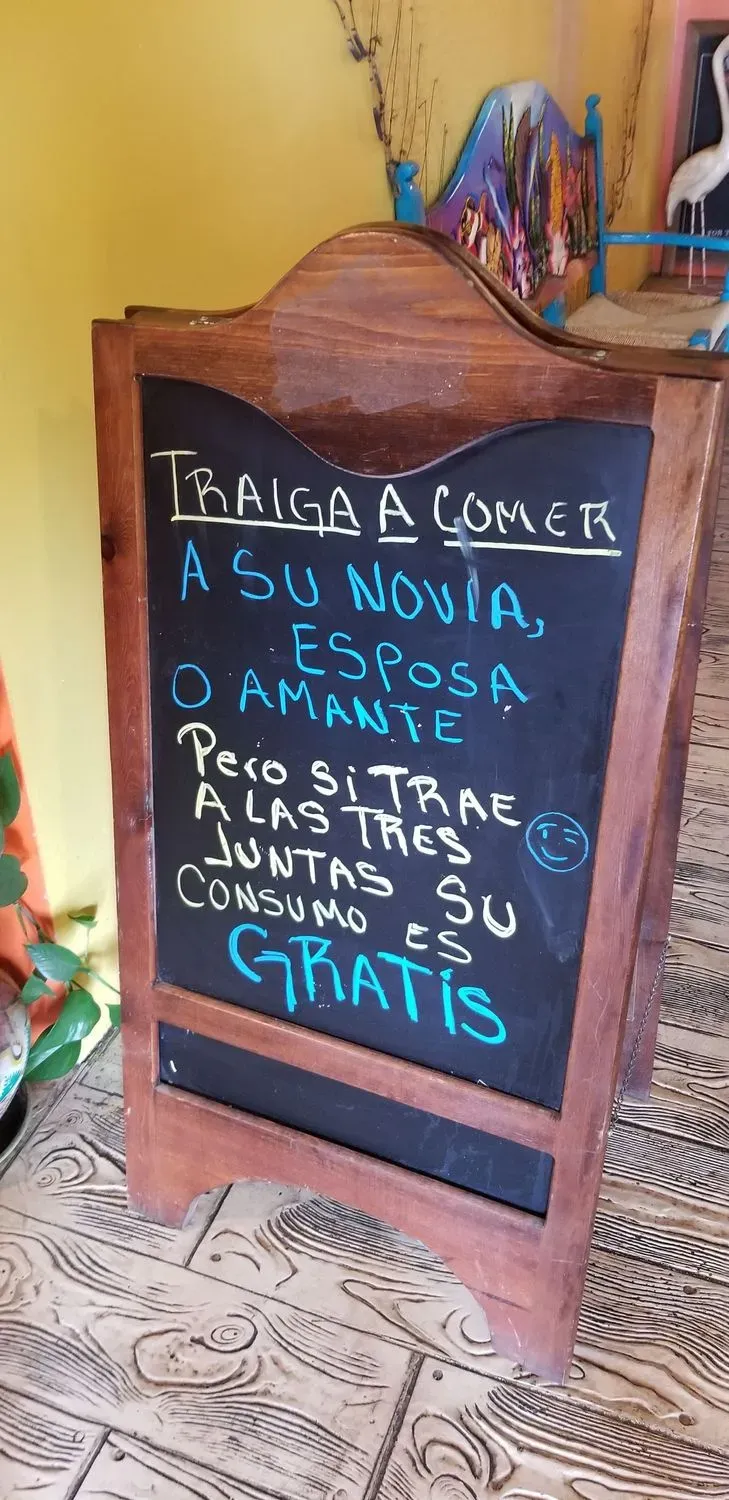 TRAIGA A COMER
A SU NOVIA,
ESPOSA
O AMANTE
Pero Si TRAE
A LAS TRES
JUNTAS SU
CONSUMO ES
GRATiS